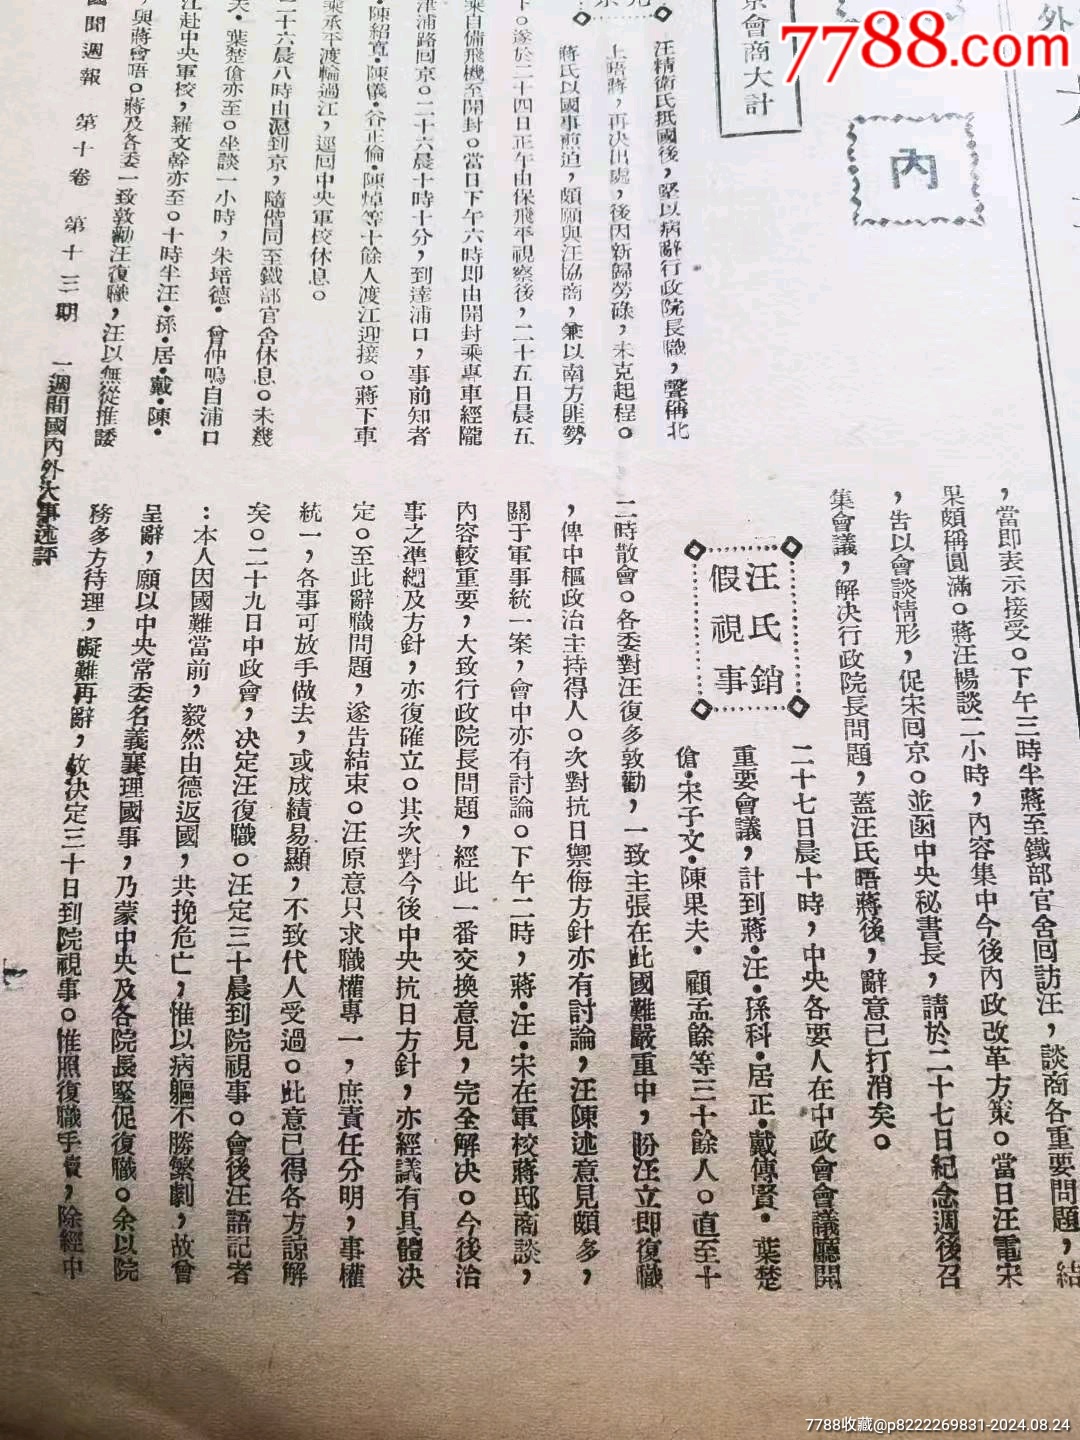 7788.com
外
內
京會商大計
汪精衛氏抵國後，堅以病辭行政院長職，聲稱北
上晤蔣，再決出處，後因新歸勞碌，未克起程。
蔣氏以國事煎迫，頗願與汪協商，兼以南方匪勢
下。遂於二十四日正午由保飛平視察後，二十五日晨五
乘自備飛機至開封。當日下午六時即由開封乘專車經隴
津浦路回京。二十六晨十時十分，到達浦口，事前知者
・陳紹寬・陳儀・谷正倫・陳焯等十餘人渡江迎接。蔣下車
乘承平渡輪過江，逕回中央軍校休息。
二十六晨八時由滬到京，隨偕同至鐵部官舍休息。未幾
夫・葉楚傖亦至。坐談一小時，朱培德・曾仲鳴自浦口
江赴中央軍校，羅文幹亦至。十時半汪・孫・居・戴・陳・
，與蔣會晤。蔣及各委一致敦勸汪復職，汪以無從推諉
，當即表示接受。下午三時半蔣至鐵部官舍回訪汪，談商各重要問題，結
果頗稱圓滿。蔣汪暢談二小時，內容集中今後內政改革方策。當日汪電宋
，告以會談情形，促宋回京。並函中央秘書長，請於二十七日紀念週後召
集會議，解決行政院長問題，蓋汪氏晤蔣後，辭意已打消矣。
汪氏銷
假視事
二十七日晨十時，中央各要人在中政會會議廳開
重要會議，計到蔣・汪・孫科・居正・戴傳賢・葉楚
傖・宋子文・陳果夫・顧孟餘等三十餘人。直至十
二時散會。各委對汪復多敦勸，一致主張在此國難嚴重中，盼汪立即復職
，俾中樞政治主持得人。次對抗日禦侮方針亦有討論，汪陳述意見頗多，
關于軍事統一案，會中亦有討論。下午二時，蔣・汪・宋在軍校蔣邸商談，
內容較重要，大致行政院長問題，經此一番交換意見，完全解決。今後治
事之準繩及方針，亦復確立。其次對今後中央抗日方針，亦經議有具體決
定。至此辭職問題，遂告結束。汪原意只求職權專一，庶責任分明，事權
統一，各事可放手做去，或成績易顯，不致代人受過。此意已得各方諒解
矣。二十九日中政會，決定汪復職。汪定三十晨到院視事。會後汪語記者
：本人因國難當前，毅然由德返國，共挽危亡，惟以病軀不勝繁劇，故曾
呈辭，願以中央常委名義襄理國事，乃蒙中央及各院長堅促復職。余以院
務多方待理，礙難再辭，故決定三十日到院視事。惟照復職手續，除經中
國聞週報　第十卷　第十三期　一週間國內外大事述評
7788收藏@p8222269831-2024.08.24